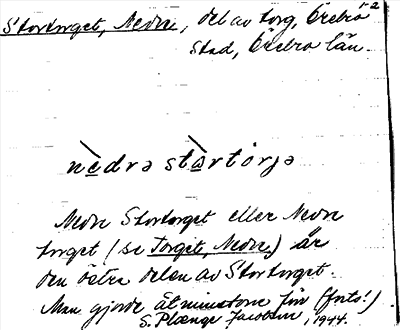 Stortorget, Nedre, del av torg, Örebro
stad, Örebro län.
nèdrə stàrtòrjə
Nedre Stortorget eller Nedre
torget (se Torget, Nedre) är
den östra delen av Stortorget.
Man gjorde åtminstone förr (forts!)
S. Plænge Jacobson, 1944.